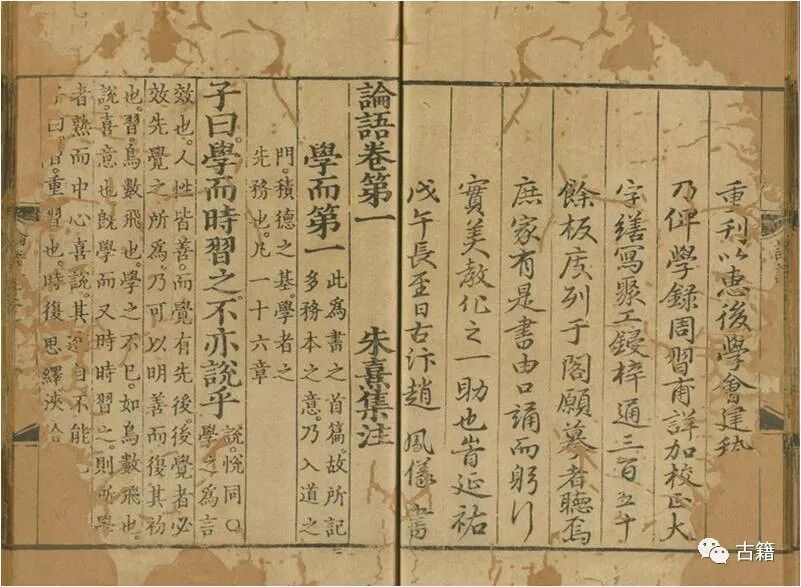 重刋以惠後學會建
乃俾學録周習甫詳加校正大
字繕寫聚工鋟梓通三百五十
餘板庋列于閣願摹者聽焉
庶家有是書由口誦而躬行
實美教化之一助也旹延祐
戊午長至日古汴趙 鳳儀 書
論語卷第一 朱熹集注
學而第一
此爲書之首篇。故所記
多務本之意。乃入道之
門。積德之基。學者之
先務也。凡一十六章
子曰。學而時習之。不亦說乎
說。悅同○
學之爲言
效也。人性皆善。而覺有先後。後覺者必
效先覺之所爲。乃可以明善而復其初
也。習。鳥數飛也。學之不已。如鳥數飛也。
說。喜意也。旣學而又時時習之。則所學
者熟而中心喜說。其進自不能
子曰。習。重習也。時復思繹。浹洽
古籍